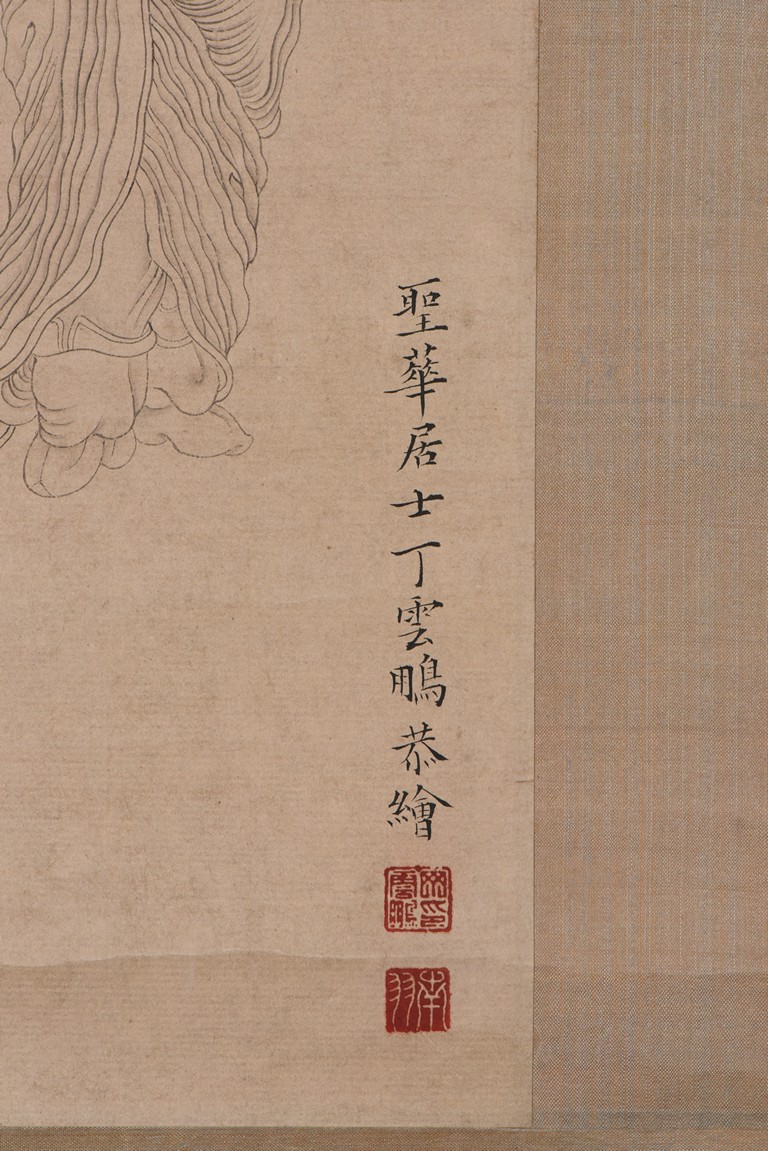 聖華居士丁雲鵬恭繪
南羽